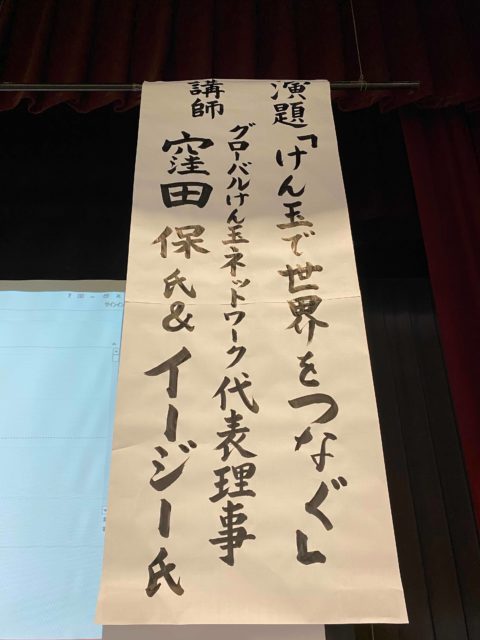 演題「けん玉で世界をつなぐ」
講師 グローバルけん玉ネットワーク代表理事
窪田 保氏&イージー氏
サインイン